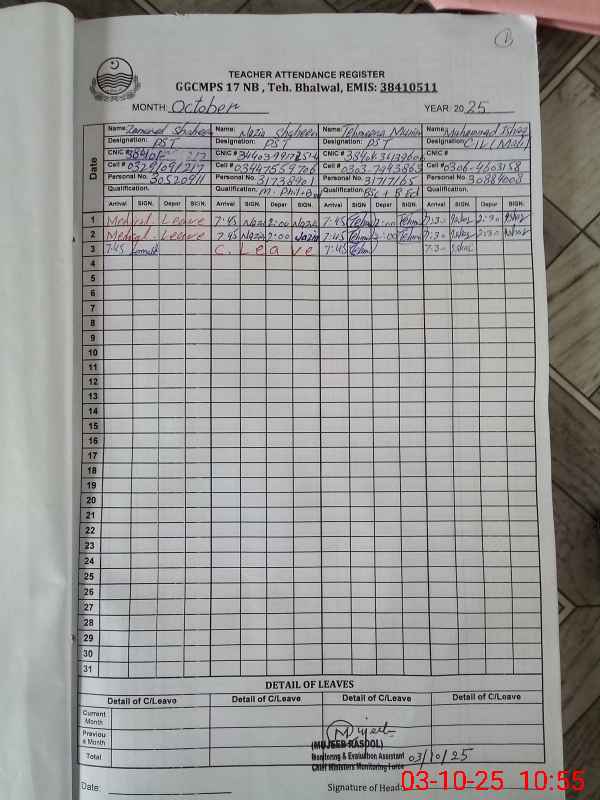 1
TEACHER ATTENDANCE REGISTER
GGCMPS 17 NB , Teh. Bhalwal, EMIS: 38410511
MONTH: October YEAR: 2025
Date
Name: Shaheen Name: Nazia Shaheen Name: Tehmeena Name: Muhammad Ishaq
Designation: PST Designation: PST Designation: PST Designation: C-IV
CNIC # CNIC # CNIC # CNIC #
Cell # Cell # Cell # 0303-7493863 Cell # 0306-4603158
Personal No. 30520911 Personal No. 31738901 Personal No. 31717165 Personal No. 30884008
Qualification. Qualification. M. Phil Qualification. BSc + B Ed Qualification.
Arrival SIGN. Depar SIGN. Arrival SIGN. Depar SIGN. Arrival SIGN. Depar SIGN. Arrival SIGN. Depar SIGN.
1 Medical Leave 7:45 Nazia 2:00 Nazia 7:45 Tehm 2:00 Tehm 7:30 Ishaq 2:30 Ishaq
2 Medical Leave 7:45 Nazia 2:00 Nazia 7:45 Tehm 2:00 Tehm 7:30 Ishaq 2:30 Ishaq
3 7:45 C. Leave 7:45 Tehm 7:30 Ishaq
4
5
6
7
8
9
10
11
12
13
14
15
16
17
18
19
20
21
22
23
24
25
26
27
28
29
30
31
DETAIL OF LEAVES
Detail of C/Leave Detail of C/Leave Detail of C/Leave Detail of C/Leave
Current
Month
Previou
s Month
Total
Mujeeb
(MUJEEB RASOOL)
Monitoring & Evaluation Assistant 03/10/25
Chief Ministers Monitoring Force
Date: Signature of Head:
03-10-25 10:55